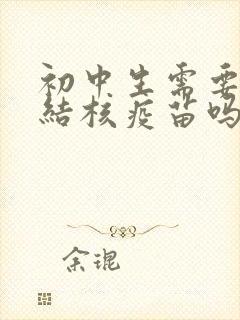 初中生需要
結核疫苗吗
余琨